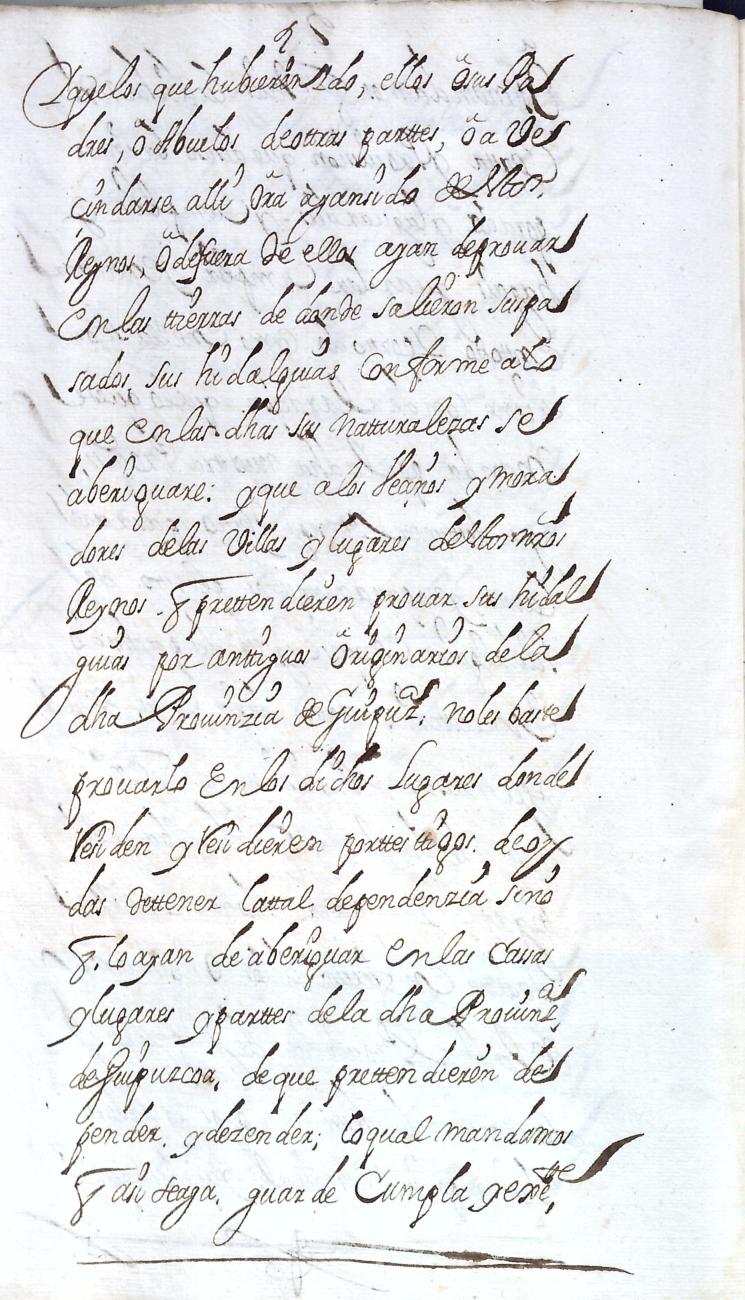 Aquelos que hubieren Ydo, ellos õ sus Pa
dres, õ Abuelos deottras parttes, õ a Ve
cindarse alli õra ayansido destos
Reynos, õ defuera de ellos ayan deprouar
en las ttierras de donde salieron suspa
sados sus hidalguias Conforme alo
que en las dhas sus natturalezas se
aberiguare: y que a los Veẑos y mora
dores de las Villas y lugares destos nrõs
Reynos q̃ prettendieren prouar sus hidal
guias por anttiguos õriginarios de la
dha Prouinzia de Guipuzª. noles baste
prouarlo en los dichos Lugares donde
Veuiden y Veuidieren porttesttigos de oy
das dettener lattal dependenzia sino
q̃. lo ayan de aberiguar en las Casas
y lugares y parttes de la dha Prouinzª.
deGuipuzcoa, de que prettendieren de
pender, y dezender; lo qual mandamos
q̃ asi sehaga, guarde Cumpla y exẽtte,